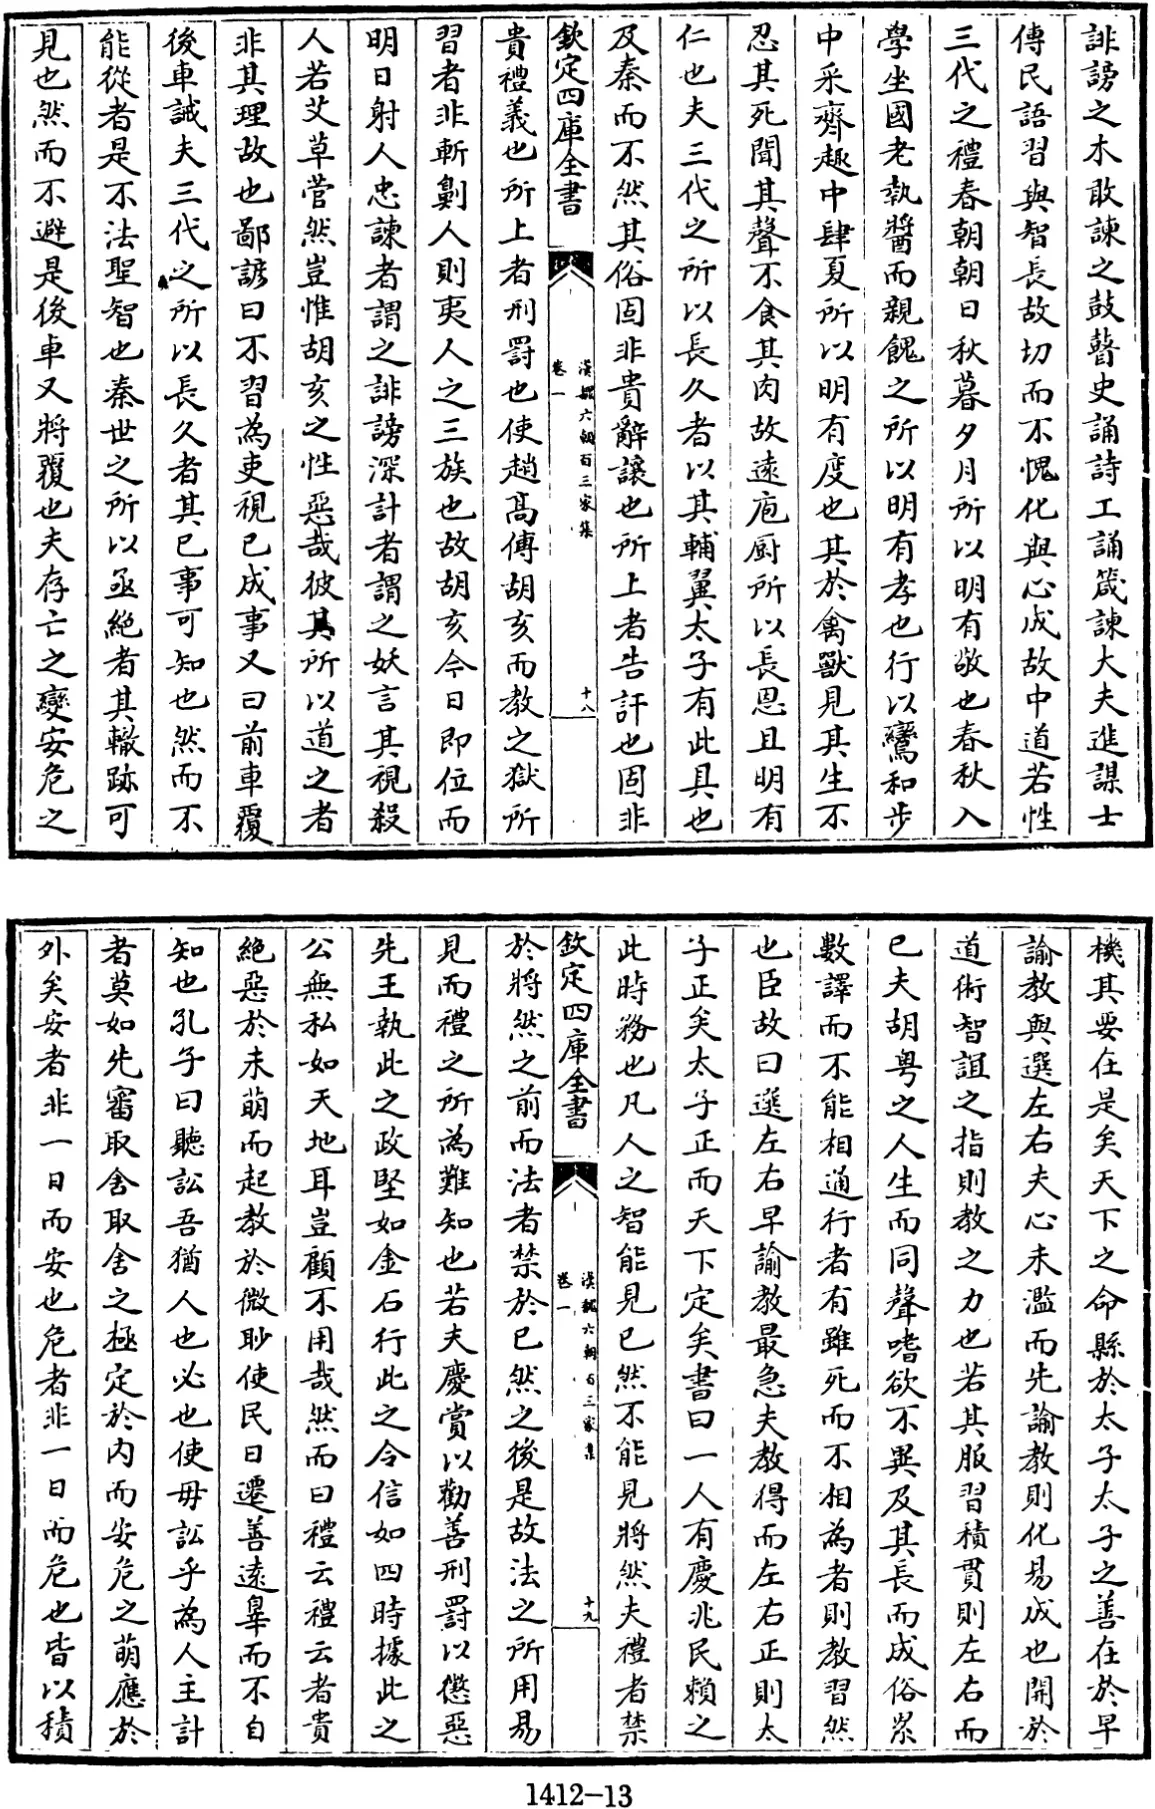 誹謗之木敢諫之鼓瞽史誦詩工誦箴諫大夫進謀士
傳民語習與智長故切而不愧化與心成故中道若性
三代之禮春朝朝日秋暮夕月所以明有敬也春秋入
學坐國老執醬而親餽之所以明有孝也行以鸞和步
中采齊趣中肆夏所以明有度也其於禽獸見其生不
忍其死聞其聲不食其肉故遠庖厨所以長恩且明有
仁也夫三代之所以長久者以其輔翼太子有此具也
及秦而不然其俗固非貴辭讓也所上者告訐也固非
欽定四庫全書
漢魏六朝百三家集
卷一
十八
貴禮義也所上者刑罰也使趙高傅胡亥而教之獄所
習者非斬劓人則夷人之三族也故胡亥今日即位而
明日射人忠諫者謂之誹謗深計者謂之妖言其視殺
人若艾草菅然豈惟胡亥之性惡哉彼其所以道之者
非其理故也鄙諺曰不習為吏視已成事又曰前車覆
後車誡夫三代之所以長久者其已事可知也然而不
能從者是不法聖智也秦世之所以亟絶者其轍跡可
見也然而不避是後車又將覆也夫存亡之變安危之
機其要在是矣天下之命縣於太子太子之善在於早
諭教與選左右夫心未濫而先諭教則化易成也開於
道術智誼之指則教之力也若其服習積貫則左右而
已夫胡粤之人生而同聲嗜欲不異及其長而成俗累
數譯而不能相通行者有雖死而不相為者則教習然
也臣故曰選左右早諭教最急夫教得而左右正則太
子正矣太子正而天下定矣書曰一人有慶兆民賴之
此時務也凡人之智能見已然不能見將然夫禮者禁
欽定四庫全書
漢魏六朝百三家集
卷一
十九
於將然之前而法者禁於已然之後是故法之所用易
見而禮之所為難知也若夫慶賞以勸善刑罰以懲惡
先王執此之政堅如金石行此之令信如四時據此之
公無私如天地耳豈顧不用哉然而曰禮云禮云者貴
絶惡於未萌而起教於微眇使民日遷善遠辠而不自
知也孔子曰聽訟吾猶人也必也使毋訟乎為人主計
者莫如先審取舍取舍之極定於内而安危之萌應於
外矣安者非一日而安也危者非一日而危也皆以積
1412-13